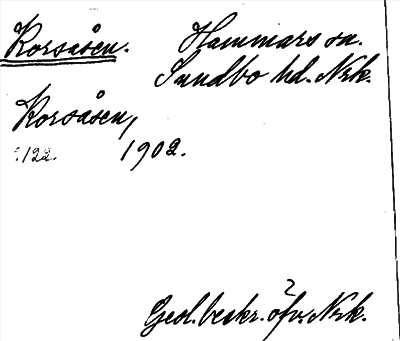 Korsåsen. Hammars sn.
Sundbo hd. Nrk.
Korsåsen,
s. 122. 1902.
Geol. beskr. öfv. Nrk.